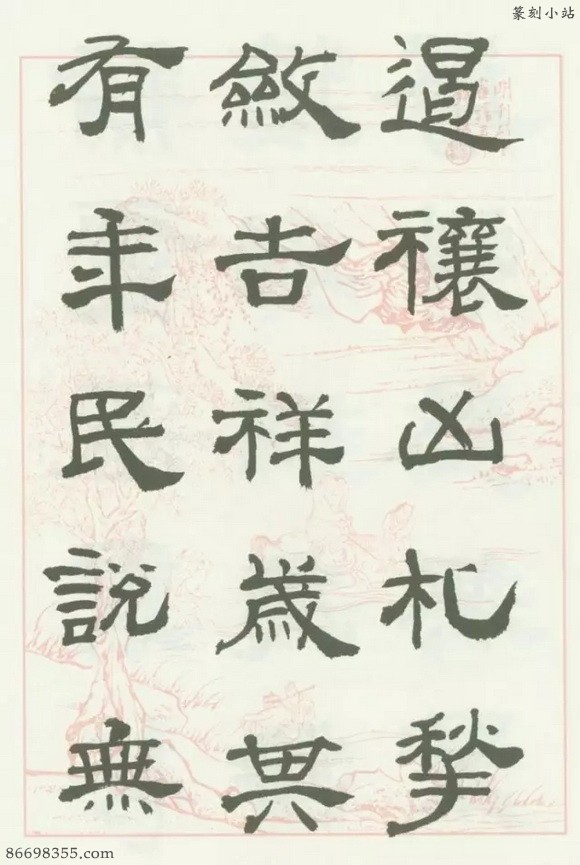 篆刻小站
遏禳凶札揫
斂吉祥歲其
有年民說無
86698355.com